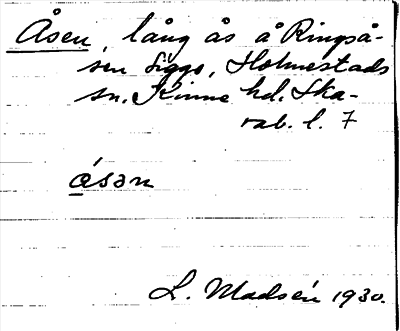 Åsen, lång ås å Ringså-
sen Siggo, Holmestads
sn. Kinne hd. Ska-
rab. l. 7
åsən
L. Madsén 1930.